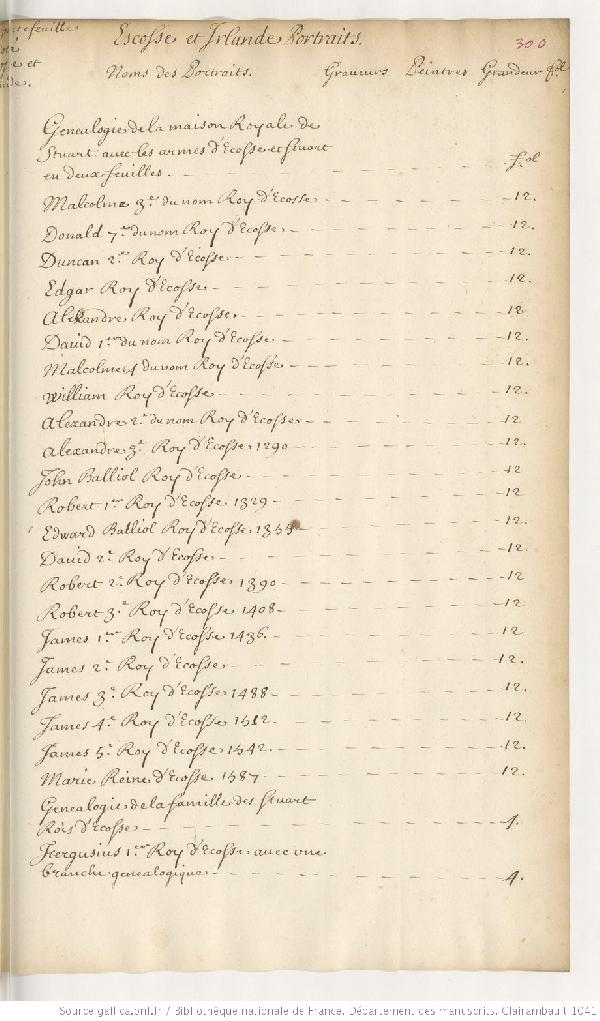 Escosse et Irlande Portraits.
300
Noms des Portraits. Graveurs Peintres Grandeur fol.
Genealogie de la maison Royale de
Stuart avec les armes d'Ecosse et Stuart
en deux feuilles. fol
Malcolme 3.e du nom Roy d'Ecosse 12.
Donald 7.me du nom Roy d'Ecosse 12.
Duncan 2.me Roy d'Ecosse 12.
Edgar Roy d'Ecosse 12.
Alexandre Roy d'Ecosse 12
David 1.er du nom Roy d'Ecosse 12.
Malcolme 4 du nom Roy d'Ecosse 12.
William Roy d'Ecosse 12.
Alexandre 2.e du nom Roy d'Ecosse 12
Alexandre 3.e Roy d'Ecosse 1290 12.
John Balliol Roy d'Ecosse 12
Robert 1.er Roy d'Ecosse 1329 12
Edward Balliol Roy d'Ecosse 12.
David 2.e Roy d'Ecosse 12.
Robert 2.e Roy d'Ecosse 1390 12
Robert 3.e Roy d'Ecosse 1408 12.
James 1.er Roy d'Ecosse 1436. 12
James 2.e Roy d'Ecosse 12.
James 3.e Roy d'Ecosse 1488 12.
James 4.e Roy d'Ecosse 1512 12.
James 5.e Roy d'Ecosse 1542 12.
Marie Reine d'Ecosse 1587 12.
Genealogie de la famille des Stuart
Rois d'Ecosse 4.
Fergusius 1.er Roy d'Ecosse avec une
branche genealogique 4.
Source gallica.bnf.fr / Bibliothèque nationale de France. Département des manuscrits. Clairambault 1041